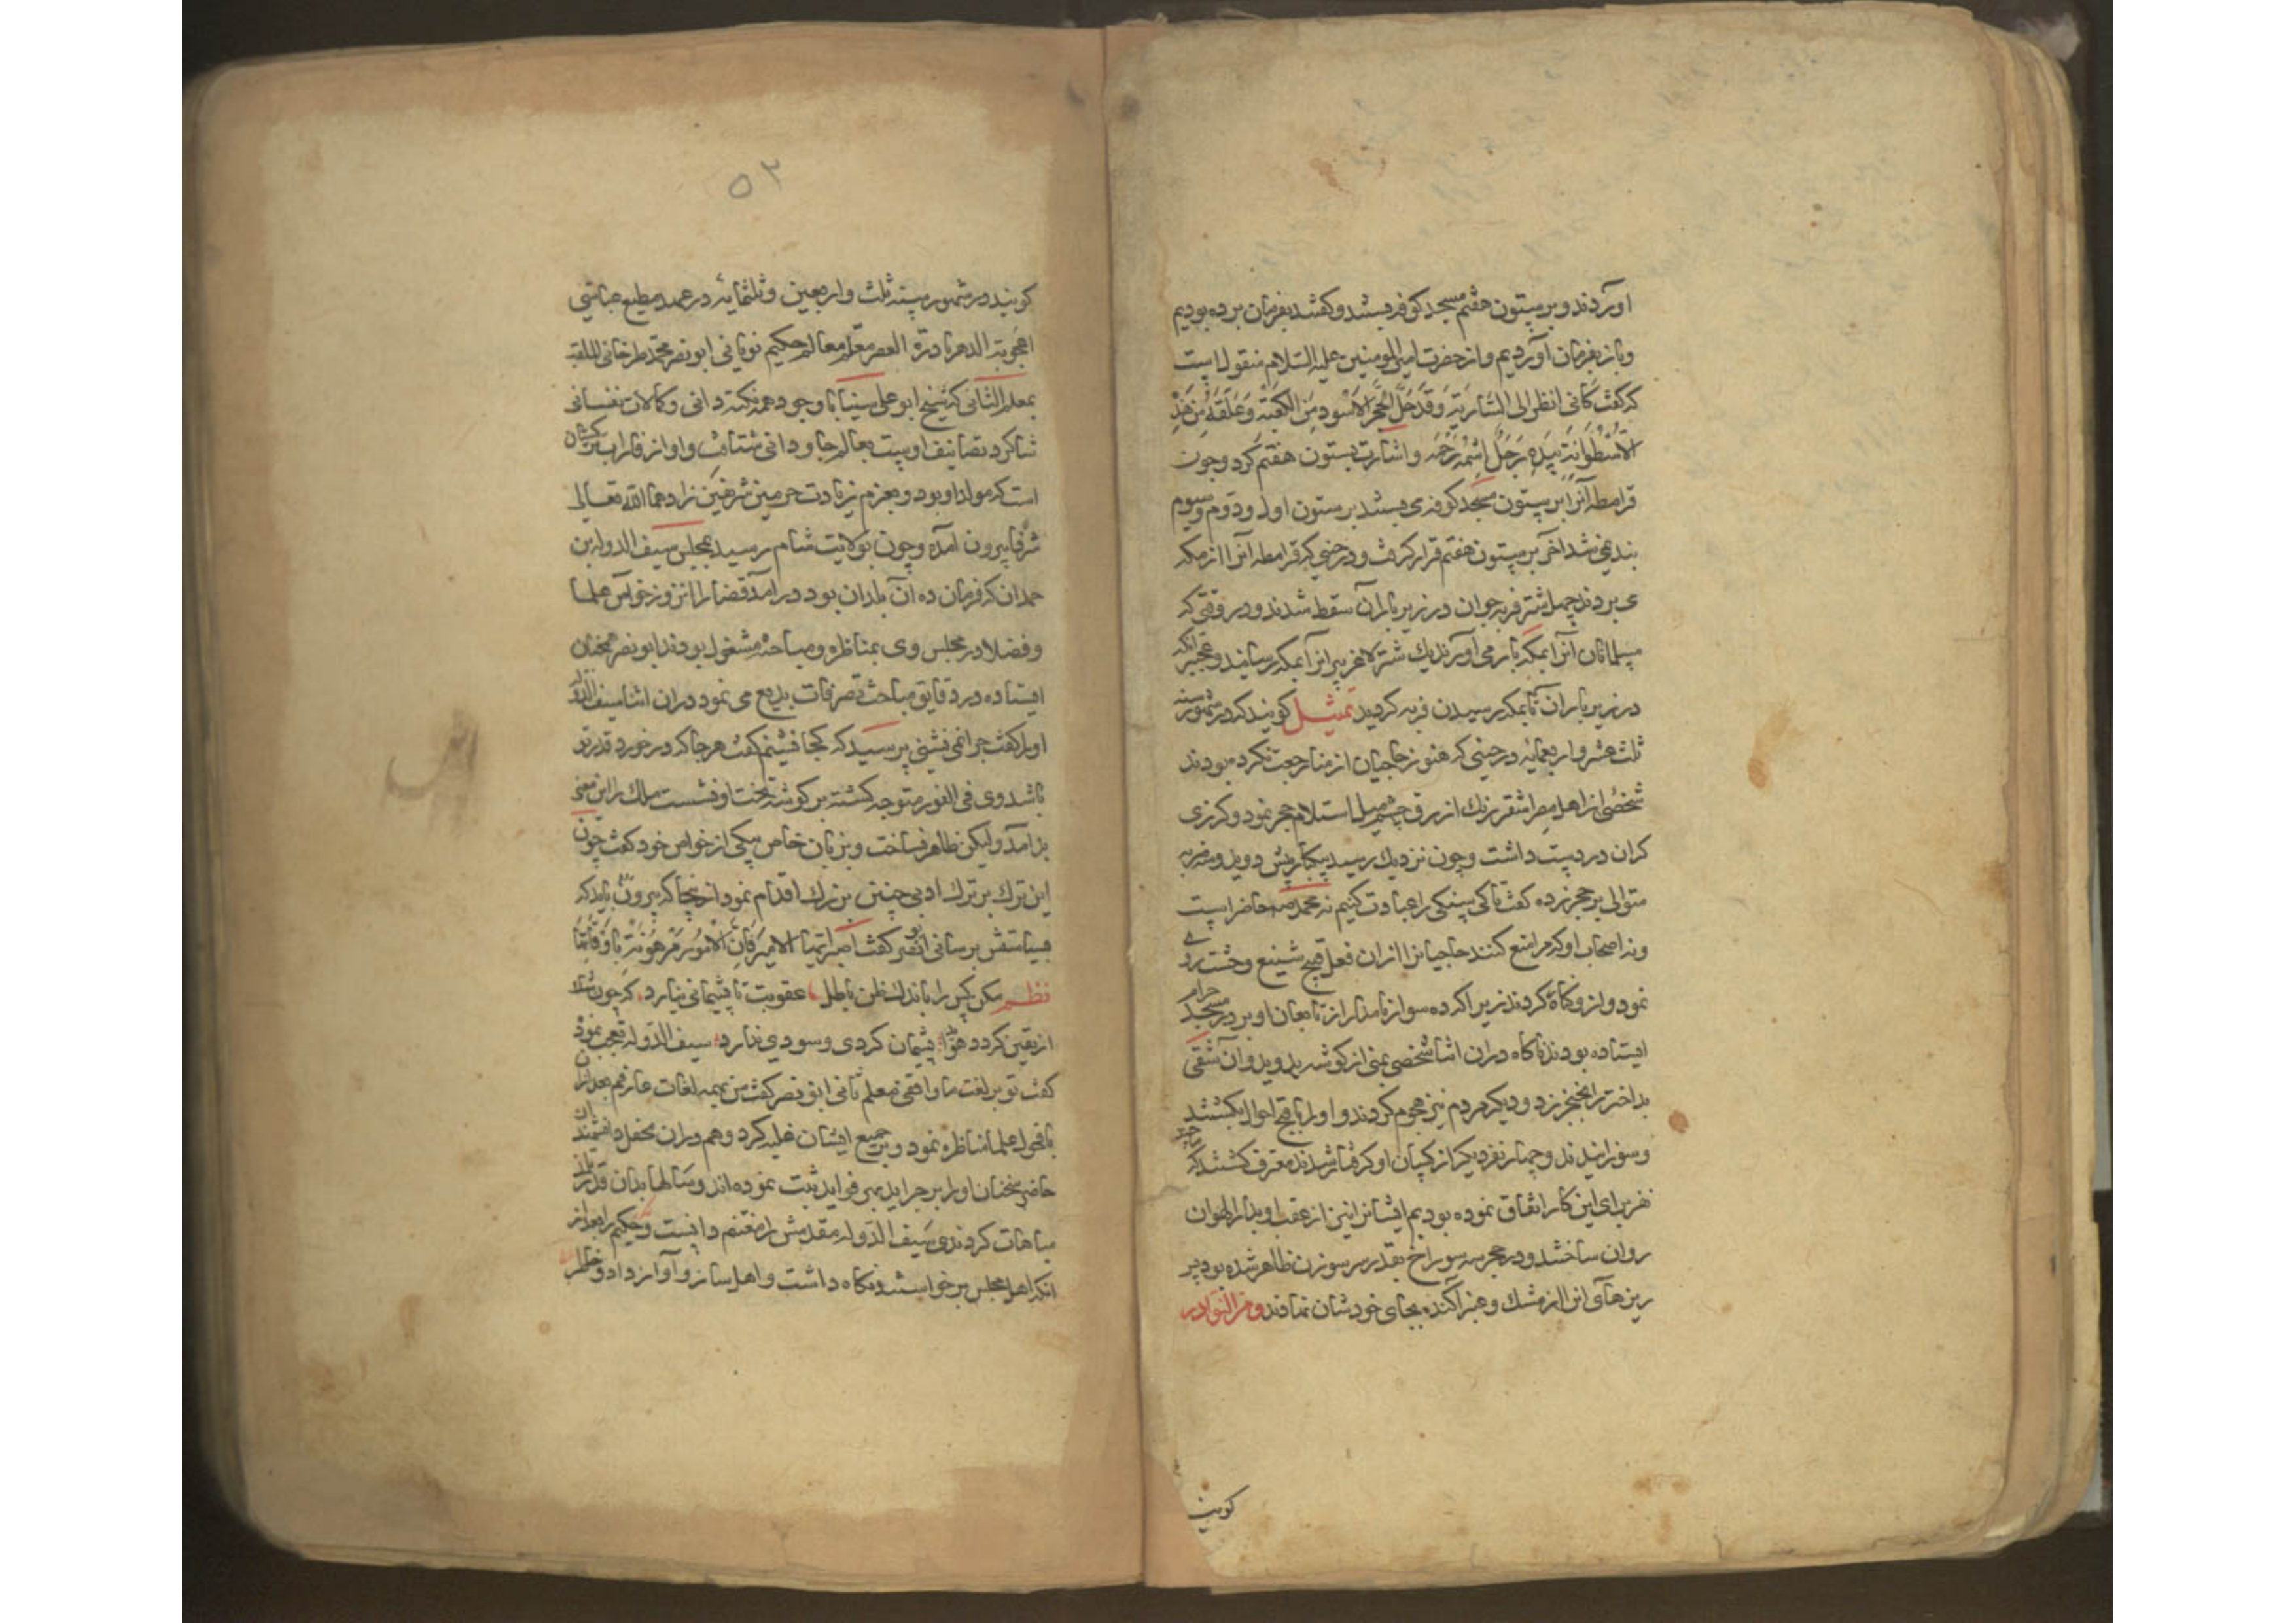 آوردند و بر ستون هفتم مسجد کوفه بستند و گفتند بفرمان برده بودیم
و باز بفرمان آوردیم و از حضرت امیر المومنین علیه السلام منقول است
که گفت کانی انظر الی الشاربه وقد حمل الحجر الاسود من الکعبه وعلقه من هذه
الاسطوانه بیده رجل اسمه رحمه و اشارت بستون هفتم کرد و چون
قرامطه آنرا بر ستون مسجد کوفه می بستند بر ستون اول و دوم و سیوم
بند نمی شد آخر بر ستون هفتم قرار گرفت و در حینی که قرامطه آنرا از مکه
می بردند چهل شتر فربه جوان در زیر بار آن سقط شدند و در وقتی که
مسلمانان آنرا بمکه باز می آوردند یک شتر لاغر پیر آنرا بمکه رسانید و عجبتر آنکه
در زیر بار آن تا بمکه رسیدن فربه گردید تمثیل گویند که در شهور سنه
ثلث عشر و اربعمایه در حینی که هنوز حاجیان از منا رجعت نکرده بودند
شخصی از اهل مصر اشقر رنگ ازرق چشم میل استلام حجر نمود و گرزی
گران در دست داشت و چون نزدیک رسید یکبار پیش دوید و سه ضربه
متوالی بر حجر زده گفت تا کی سنگی را عبادت کنیم نه محمد ص حاضر است
و نه اصحاب او که مرا منع کنند حاجیان را از آن فعل قبیح شنیع وحشت روی
نمود و از وی نگاه کردند زیرا که ده سوار نامدار از تابعان او بر در مسجد حرام
ایستاده بودند ناگاه در آن اثنا شخصی یمنی از گوشه بدوید و آن شقی
بد اختر را بخنجر زد و دیگر مردم نیز هجوم کردند و او را باقبح احوال بکشتند
و سوزانیدند و چهار نفر دیگر از کسان او گرفتار شدند معترف گشتند که ما چند
نفر برای این کار اتفاق نموده بودیم ایشانرا نیز از عقب او بدار الهوان
روان ساختند و در حجر سه سوراخ بقدر سر سوزن ظاهر شده بود پر
ریزهای آنرا از مشک و عنبر آکنده بجای خودشان نهادند و من النوادر
گویند
۵۳
گویند در شهور سنه ثلث و اربعین و ثلثمایه در عهد مطیع عباسی
اعجوبه الدهر نادره العصر معلم معالم حکیم یونانی ابو نصر محمد طرخانی الملقب
بمعلم الثانی که شیخ ابو علی سینا با وجود همه نکته دانی و کمالات نفسانی
شاگرد تصانیف اوست بعالم جاودانی شتافت و او از فاراب ترکستان
است که مولد او بود و بعزم زیارت حرمین شریفین زادهما الله تعالی
شرفا بیرون آمده و چون بولایت شام رسید بمجلس سیف الدوله بن
حمدان که فرمان ده آن بلدان بود در آمد قضا را آنروز خواص علما
و فضلا در مجلس وی بمناظره و مباحثه مشغول بودند ابو نصر همچنان
ایستاده در دقایق مباحث تصرفات بدیع می نمود در آن اثنا سیف الدوله
او را گفت چرا نمی نشینی پرسید که کجا نشینم گفت هر جا که در خورد قدر تو
باشد وی فی الفور متوجه گشته بر گوشه تخت او نشست ملک را این معنی
بد آمد ولیکن ظاهر نساخت و بزبان خاص بیکی از خواص خود گفت چون
این ترک بر ترک ادبی چنین بزرگ اقدام نمود از اینجا که بیرون باید که
بسیاستش برسانی ابو نصر گفت اصبر ایها الامیر فان الامور مرهونه باوقاتها
نظم مکن کس را باندک ظن باطل عقوبت تا پشیمانی نیارد که چون شک
از یقین گردد هویدا پشیمان گردی و سودی ندارد سیف الدوله تعجب نمود
گفت تو بر لغت ما واقفی معلم ثانی ابو نصر گفت من بهمه لغات عارفم بعد از آن
با فحول علما مناظره نمود و بر جمیع ایشان غلبه کرد و هم در آن محفل دانشمندان
حاضر سخنان او را بر جراید پر فواید ثبت نموده اند و سالها بدان قدر باز
مباهات کردندی سیف الدوله مقدمش را مغتنم دانست و حکیم را بعد از
آنکه اهل مجلس برخواستند نگاه داشت و اهل ساز و آواز داد و خاطر